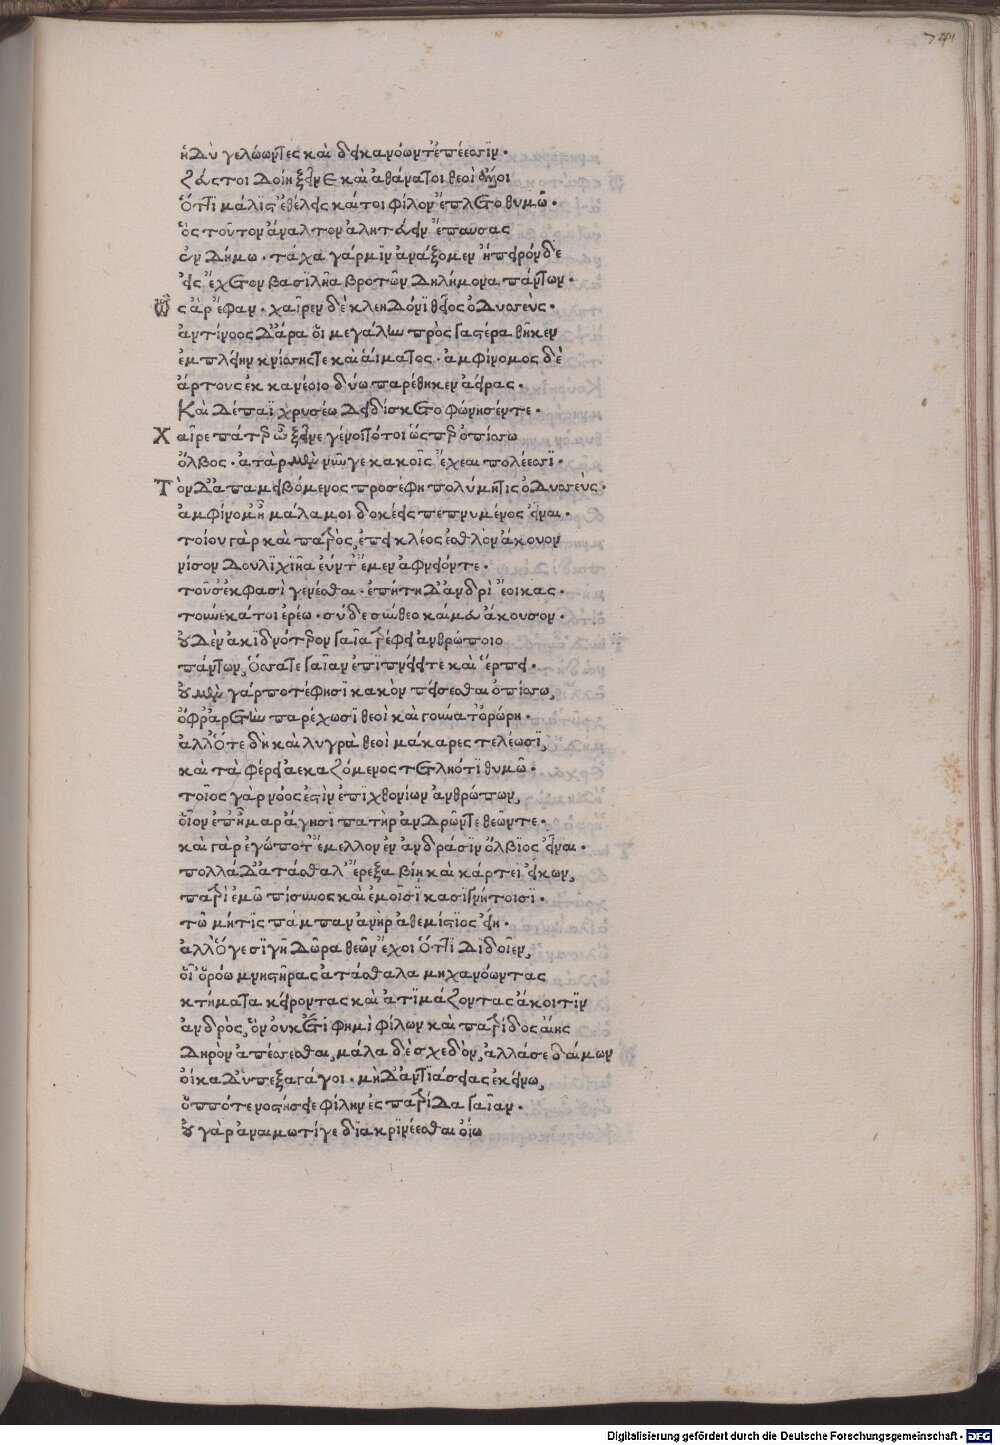 ἡδὺ γελώωντες καὶ δεικανόωντ' ἐπέεσσιν·
Ζεύς τοι δοίη ξεῖνε καὶ ἀθάνατοι θεοὶ ἄλλοι
ὅττι μάλιστ' ἐθέλεις καί τοι φίλον ἔπλετο θυμῶ·
ὃς τοῦτον ἄναλτον ἀλητεύειν ἔπαυσας
ἐν δήμω· τάχα γάρ μιν ἀνάξομεν ἤπειρόνδε
εἰς ἔχετον βασιλῆα βροτῶν δηλήμονα πάντων·
ὣς ἄρ' ἔφαν· χαῖρεν δὲ κλεηδόνι θεῖος ὀδυσσεὺς·
ἀντίνοος δ' ἄρα οἱ μεγάλην πρὸς γαστέρα θῆκεν
ἐμπλείην κνίσσης τε καὶ αἵματος· ἀμφίνομος δὲ
ἄρτους ἐκ κανέοιο δύω παρέθηκεν ἀείρας·
Καὶ δέπαϊ χρυσέω δειδίσκετο φώνησέν τε·
Χαῖρε πάτερ ὦ ξεῖνε γένοιτό τοι ὥς περ ὀπίσσω
ὄλβος· ἀτὰρ μὲν νῦν γε κακοῖς ἔχεαι πολέεσσι·
Τὸν δ' ἀπαμειβόμενος προσέφη πολύμητις ὀδυσσεὺς·
ἀμφίνομ' ἦ μάλα μοι δοκέεις πεπνυμένος εἶναι·
τοίου γὰρ καὶ πατρὸς, ἐπεὶ κλέος ἐσθλὸν ἄκουον
νίσον δουλιχιῆα ἐΰν τ' ἔμεν ἀφνειόν τε·
τοῦ σ' ἔκ φασὶ γενέσθαι· ἐπήτη δ' ἀνδρὶ ἔοικας·
τοὔνεκά τοι ἐρέω· σύ δε σύνθεο καί μευ ἄκουσον·
οὐδὲν ἀκιδνότερον γαῖα τρέφει ἀνθρώποιο
πάντων, ὅσσα τε γαῖαν ἐπιπνείει τε καὶ ἕρπει·
οὐ μὲν γάρ ποτέ φησι κακὸν πείσεσθαι ὀπίσσω,
ὄφρ' ἀρετὴν παρέχωσι θεοὶ καὶ γούνατ' ὀρώρη·
ἀλλ' ὅτε δὴ καὶ λυγρὰ θεοὶ μάκαρες τελέωσι,
καὶ τὰ φέρει ἀεκαζόμενος τετληότι θυμῶ·
τοῖος γὰρ νόος ἐστὶν ἐπιχθονίων ἀνθρώπων,
οἷον ἐπ' ἦμαρ ἄγησι πατὴρ ἀνδρῶν τε θεῶν τε·
καὶ γὰρ ἐγώ ποτ' ἔμελλον ἐν ἀνδράσιν ὄλβιος εἶναι·
πολλά δ' ἀτάσθαλ' ἔρεξα βίη καὶ κάρτεϊ εἴκων,
πατρὶ ἐμῶ πίσυνος καὶ ἐμοῖσι κασιγνήτοισι·
τῶ μή τις πάμπαν ἀνὴρ ἀθεμίστιος εἴη·
ἀλλ' ὅγε σιγῆ δῶρα θεῶν ἔχοι ὅττι διδοῖεν,
οἷ' ὁρόω μνηστῆρας ἀτάσθαλα μηχανόωντας
κτήματα κείροντας καὶ ἀτιμάζοντας ἄκοιτιν
ἀνδρὸς, ὃν οὐκέτι φημὶ φίλων καὶ πατρίδος αἴης
δηρὸν ἀπέσσεσθαι, μάλα δὲ σχεδὸν, ἀλλά σε δαίμων
οἴκαδ' ὑπεξαγάγοι· μὴ δ' ἀντιάσειας ἐκείνω,
ὁππότε νοστήσειε φίλην ἐς πατρίδα γαῖαν·
οὐ γὰρ ἀναιμωτί γε διακρινέεσθαι ὀΐω
Digitalisierung gefördert durch die Deutsche Forschungsgemeinschaft · DFG